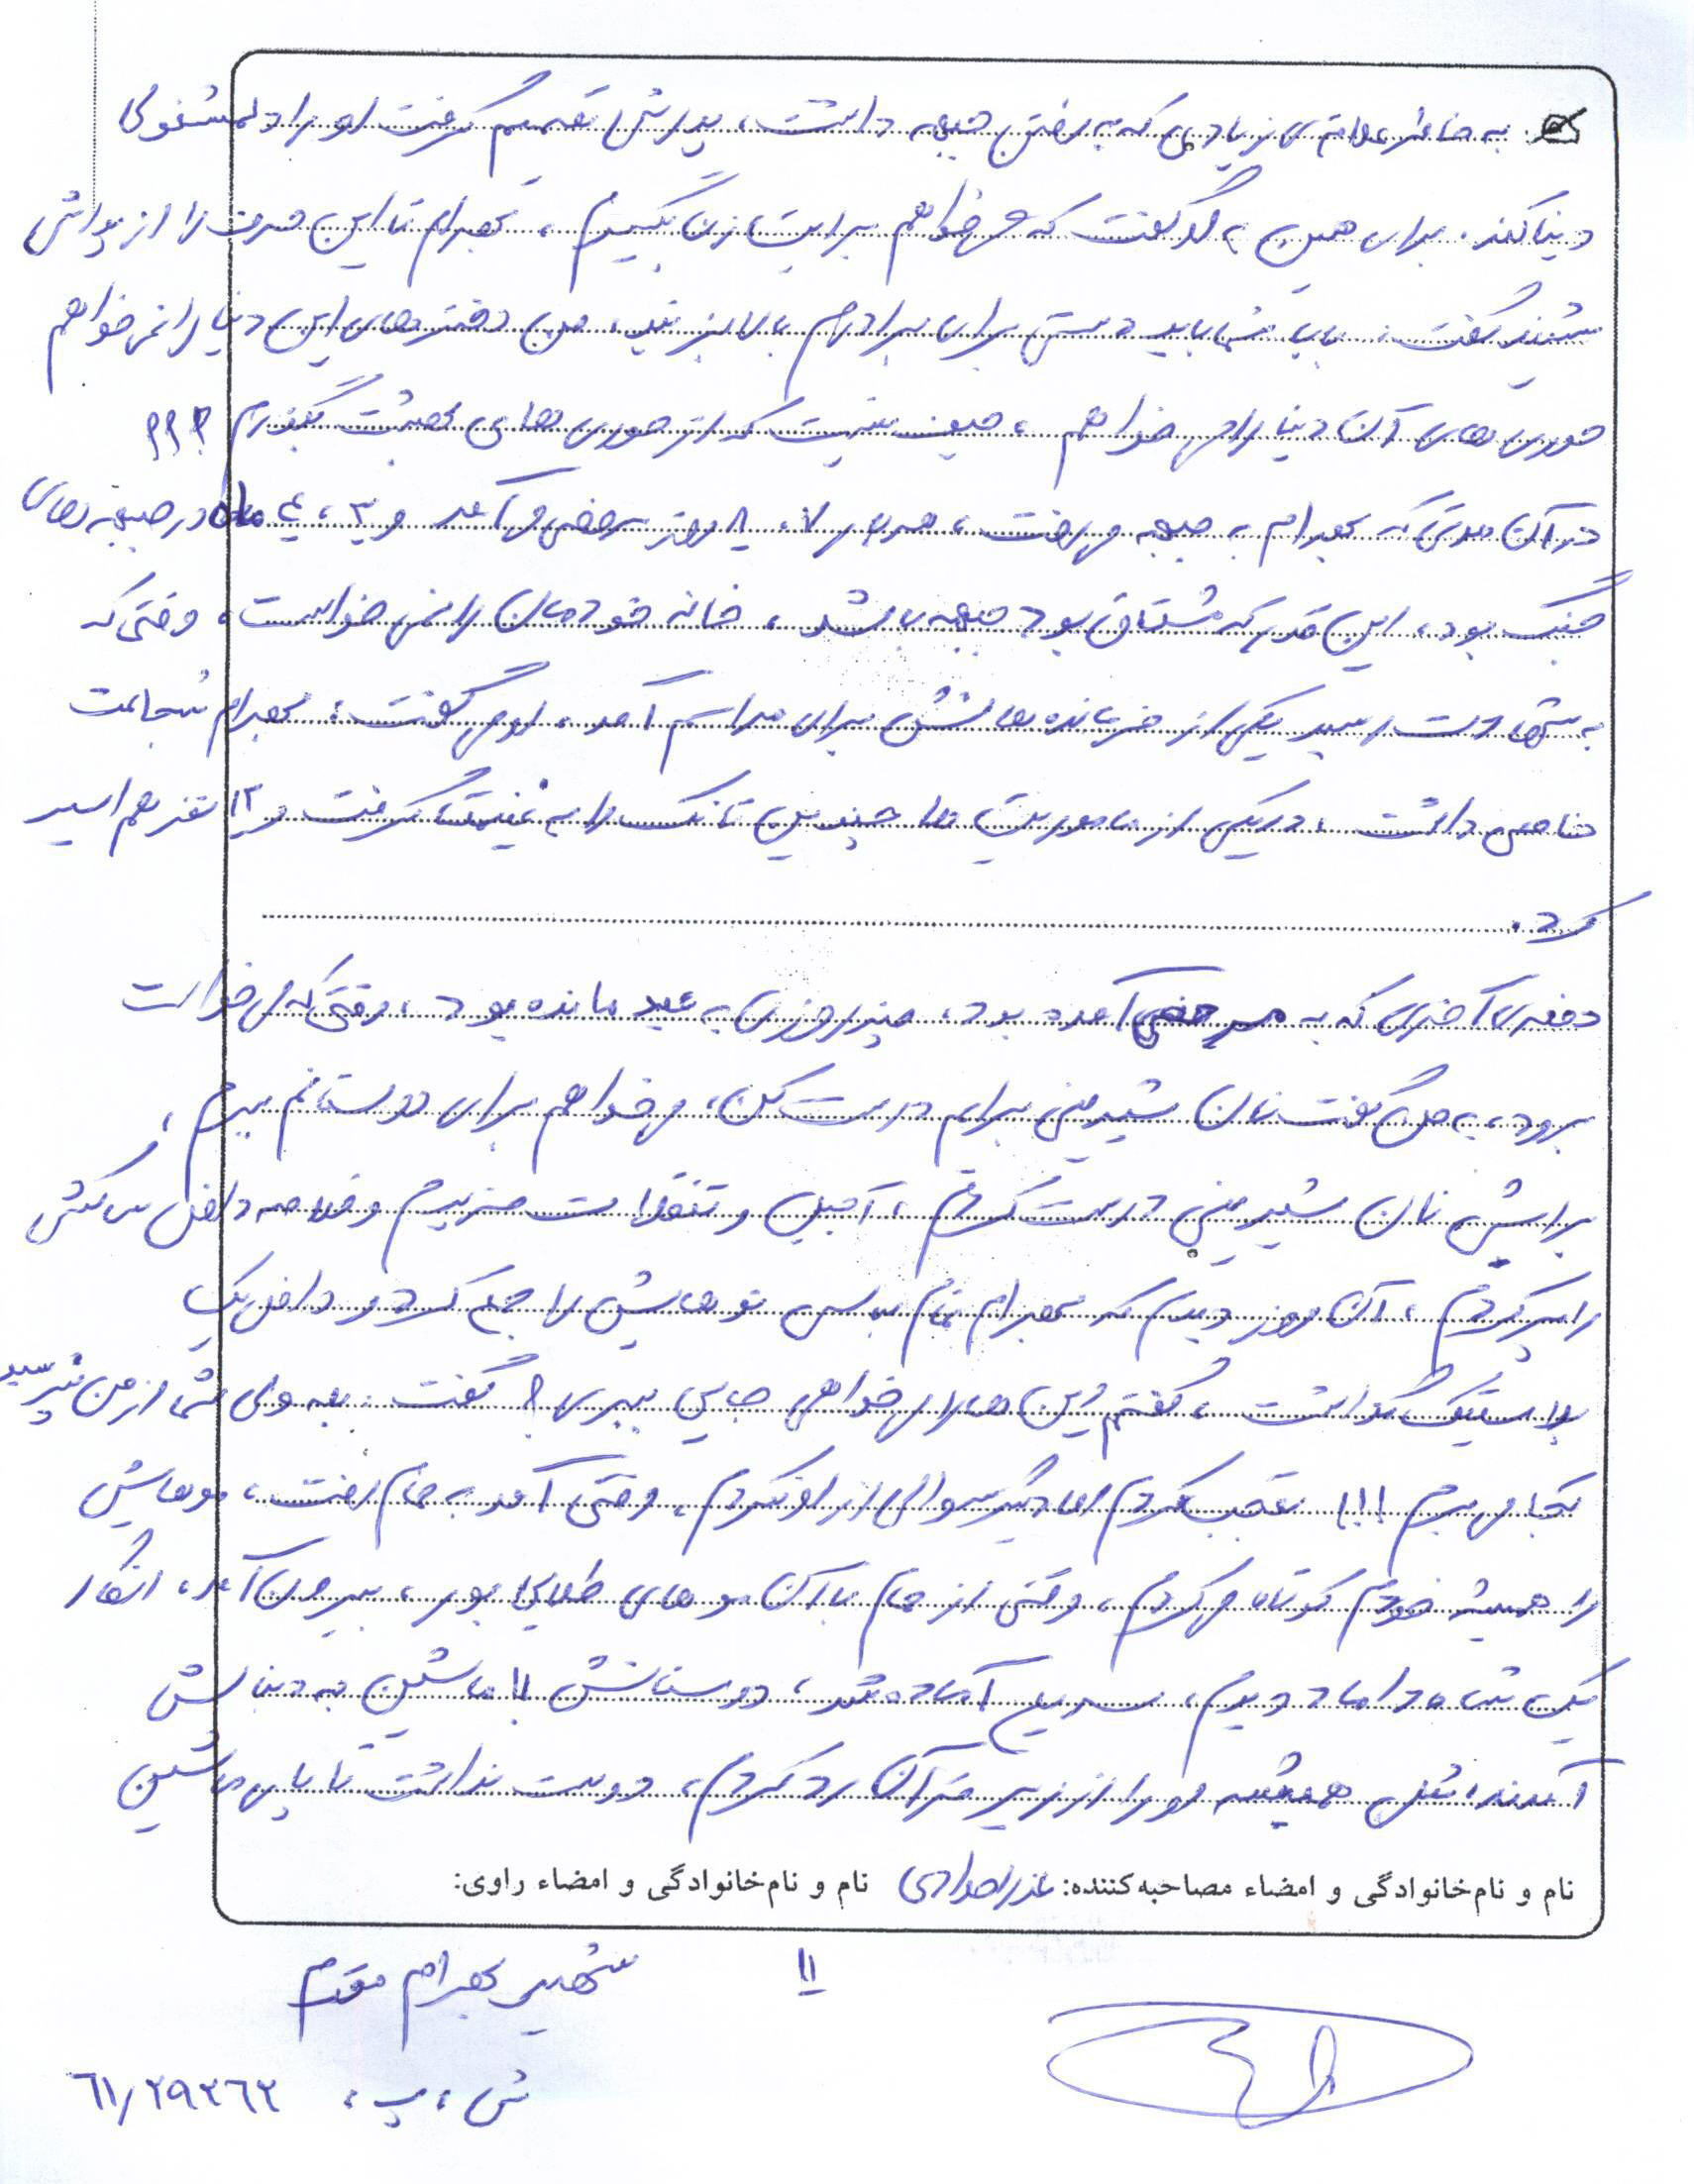 به خاطر علاقه‌ی زیادی که به رفتن جبهه داشت، پدرش تصمیم گرفت او را دلمشغول
دنیا کند. برای همین به او گفت که می‌خواهم برایت زن بگیرم، بهرام تا این حرف را از پدرش
شنید گفت: بابا شما باید دستی برای برادرم بالا بزنید، من دخترهای این دنیا را نمی‌خواهم
حوری‌های آن دنیا را می‌خواهم، حیف نیست که از حوری‌های بهشت بگذرم؟؟؟
در آن مدتی که بهرام به جبهه می‌رفت، هر بار ۷، ۸ روز مرخصی می‌آمد و ۳، ۴ ماه در جبهه‌های
جنگ بود، این قدر که مشتاق بود جبهه باشد، خانه خودمان را نمی‌خواست، وقتی که
به شهادت رسید یکی از فرمانده‌هانش برای مراسم آمد، او می‌گفت: بهرام شجاعت
خاصی داشت، در یکی از ماموریت‌ها چندین تانک را به غنیمت گرفت و ۱۲ نفر هم اسیر
کرد.
دفعه‌ی آخری که به مرخصی آمده بود، چند روزی به عید مانده بود، وقتی که می‌خواست
برود، به من گفت نان شیرینی برایم درست کن، می‌خواهم برای دوستانم ببرم،
برایش نان شیرینی درست کردم، آجیل و تنقلات خریدم و خلاصه داخل ساکش
را پر کردم، آن روز دیدم که بهرام تمام لباس نوهایش را جمع کرد و داخل یک
پلاستیک گذاشت، گفتم این‌ها را می‌خواهی جایی ببری؟ گفت: بله ولی شما از من نپرسید
کجا می‌برم!!! تعجب کردم اما دیگر سوالی از او نکردم، وقتی آمد به حمام رفت، موهایش
را همیشه خودم کوتاه می‌کردم، وقتی از حمام با آن موهای طلایی بور، بیرون آمد، انگار
یک شاه داماد دیدم، سریع آماده شد، دوستانش با ماشین به دنبالش
آمدند، مثل همیشه او را از زیر قرآن رد کردم، دوست نداشت تا پای ماشین
نام و نام‌خانوادگی و امضاء مصاحبه‌کننده: عذرا مرادی نام و نام‌خانوادگی و امضاء راوی:
۱۱
شهید بهرام مقدم
ش، پ، ۶۱/۲۹۳۶۳